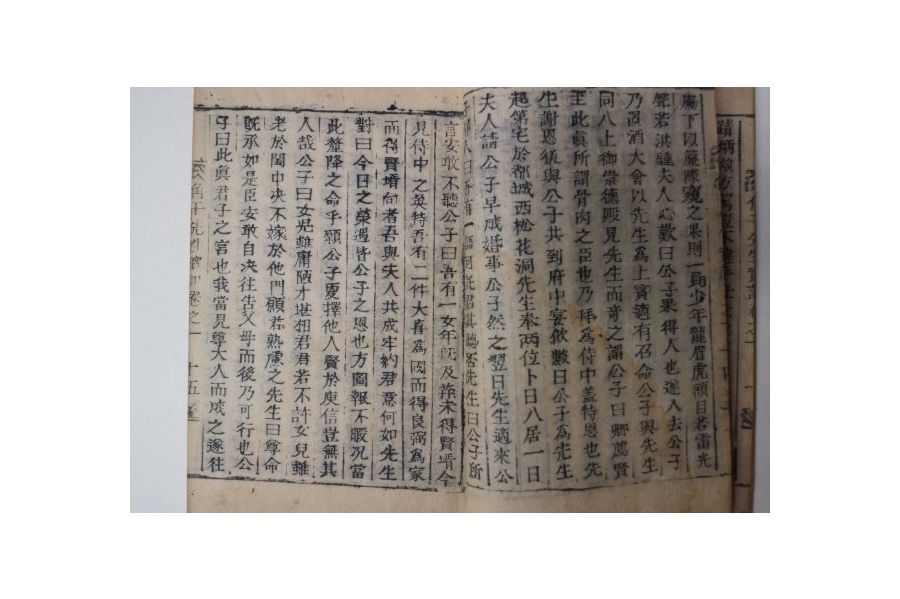 廡下以廉隙窺之果則一員少年龍眉虎額目若雷光
聲若洪鍾夫人心歎曰公子果得人也遂入去公子
乃置酒大會以先生為上賓適有召命公子與先生
同入上御崇德殿見先生而奇之謂公子曰卿薦賢
主此真所謂骨肉之臣也乃拜為侍中盖特恩也先
生謝恩後與公子共到府中宴飲數日公子為先生
起第宅於都城西松花洞先生奉兩位卜日入居一日
夫人請公子早成婚事公子然之翌日先生適來公
人曰吾有一語聽否先生曰公子所
言安敢不聽公子曰吾有一女年旣及筓未得賢壻今
見侍中之英特吾有二件大喜為國而得良弼為家
而得賢壻向者吾與夫人共成牢約君意何如先生
對曰今日之榮遇皆公子之恩也方圖報不暇况當
此釐降之命乎願公子更擇他人賢於庾信豈無其
人哉公子曰女兒雖庸陋才堪相君君若不許女兒雖
老於閨中决不嫁於他門願君熟慮之先生曰尊命
旣承如是臣安敢自决往告父母而後乃可行也公
子曰此眞君子之言也我當見尊大人而成之遂往
角干先生實記卷之一 十五